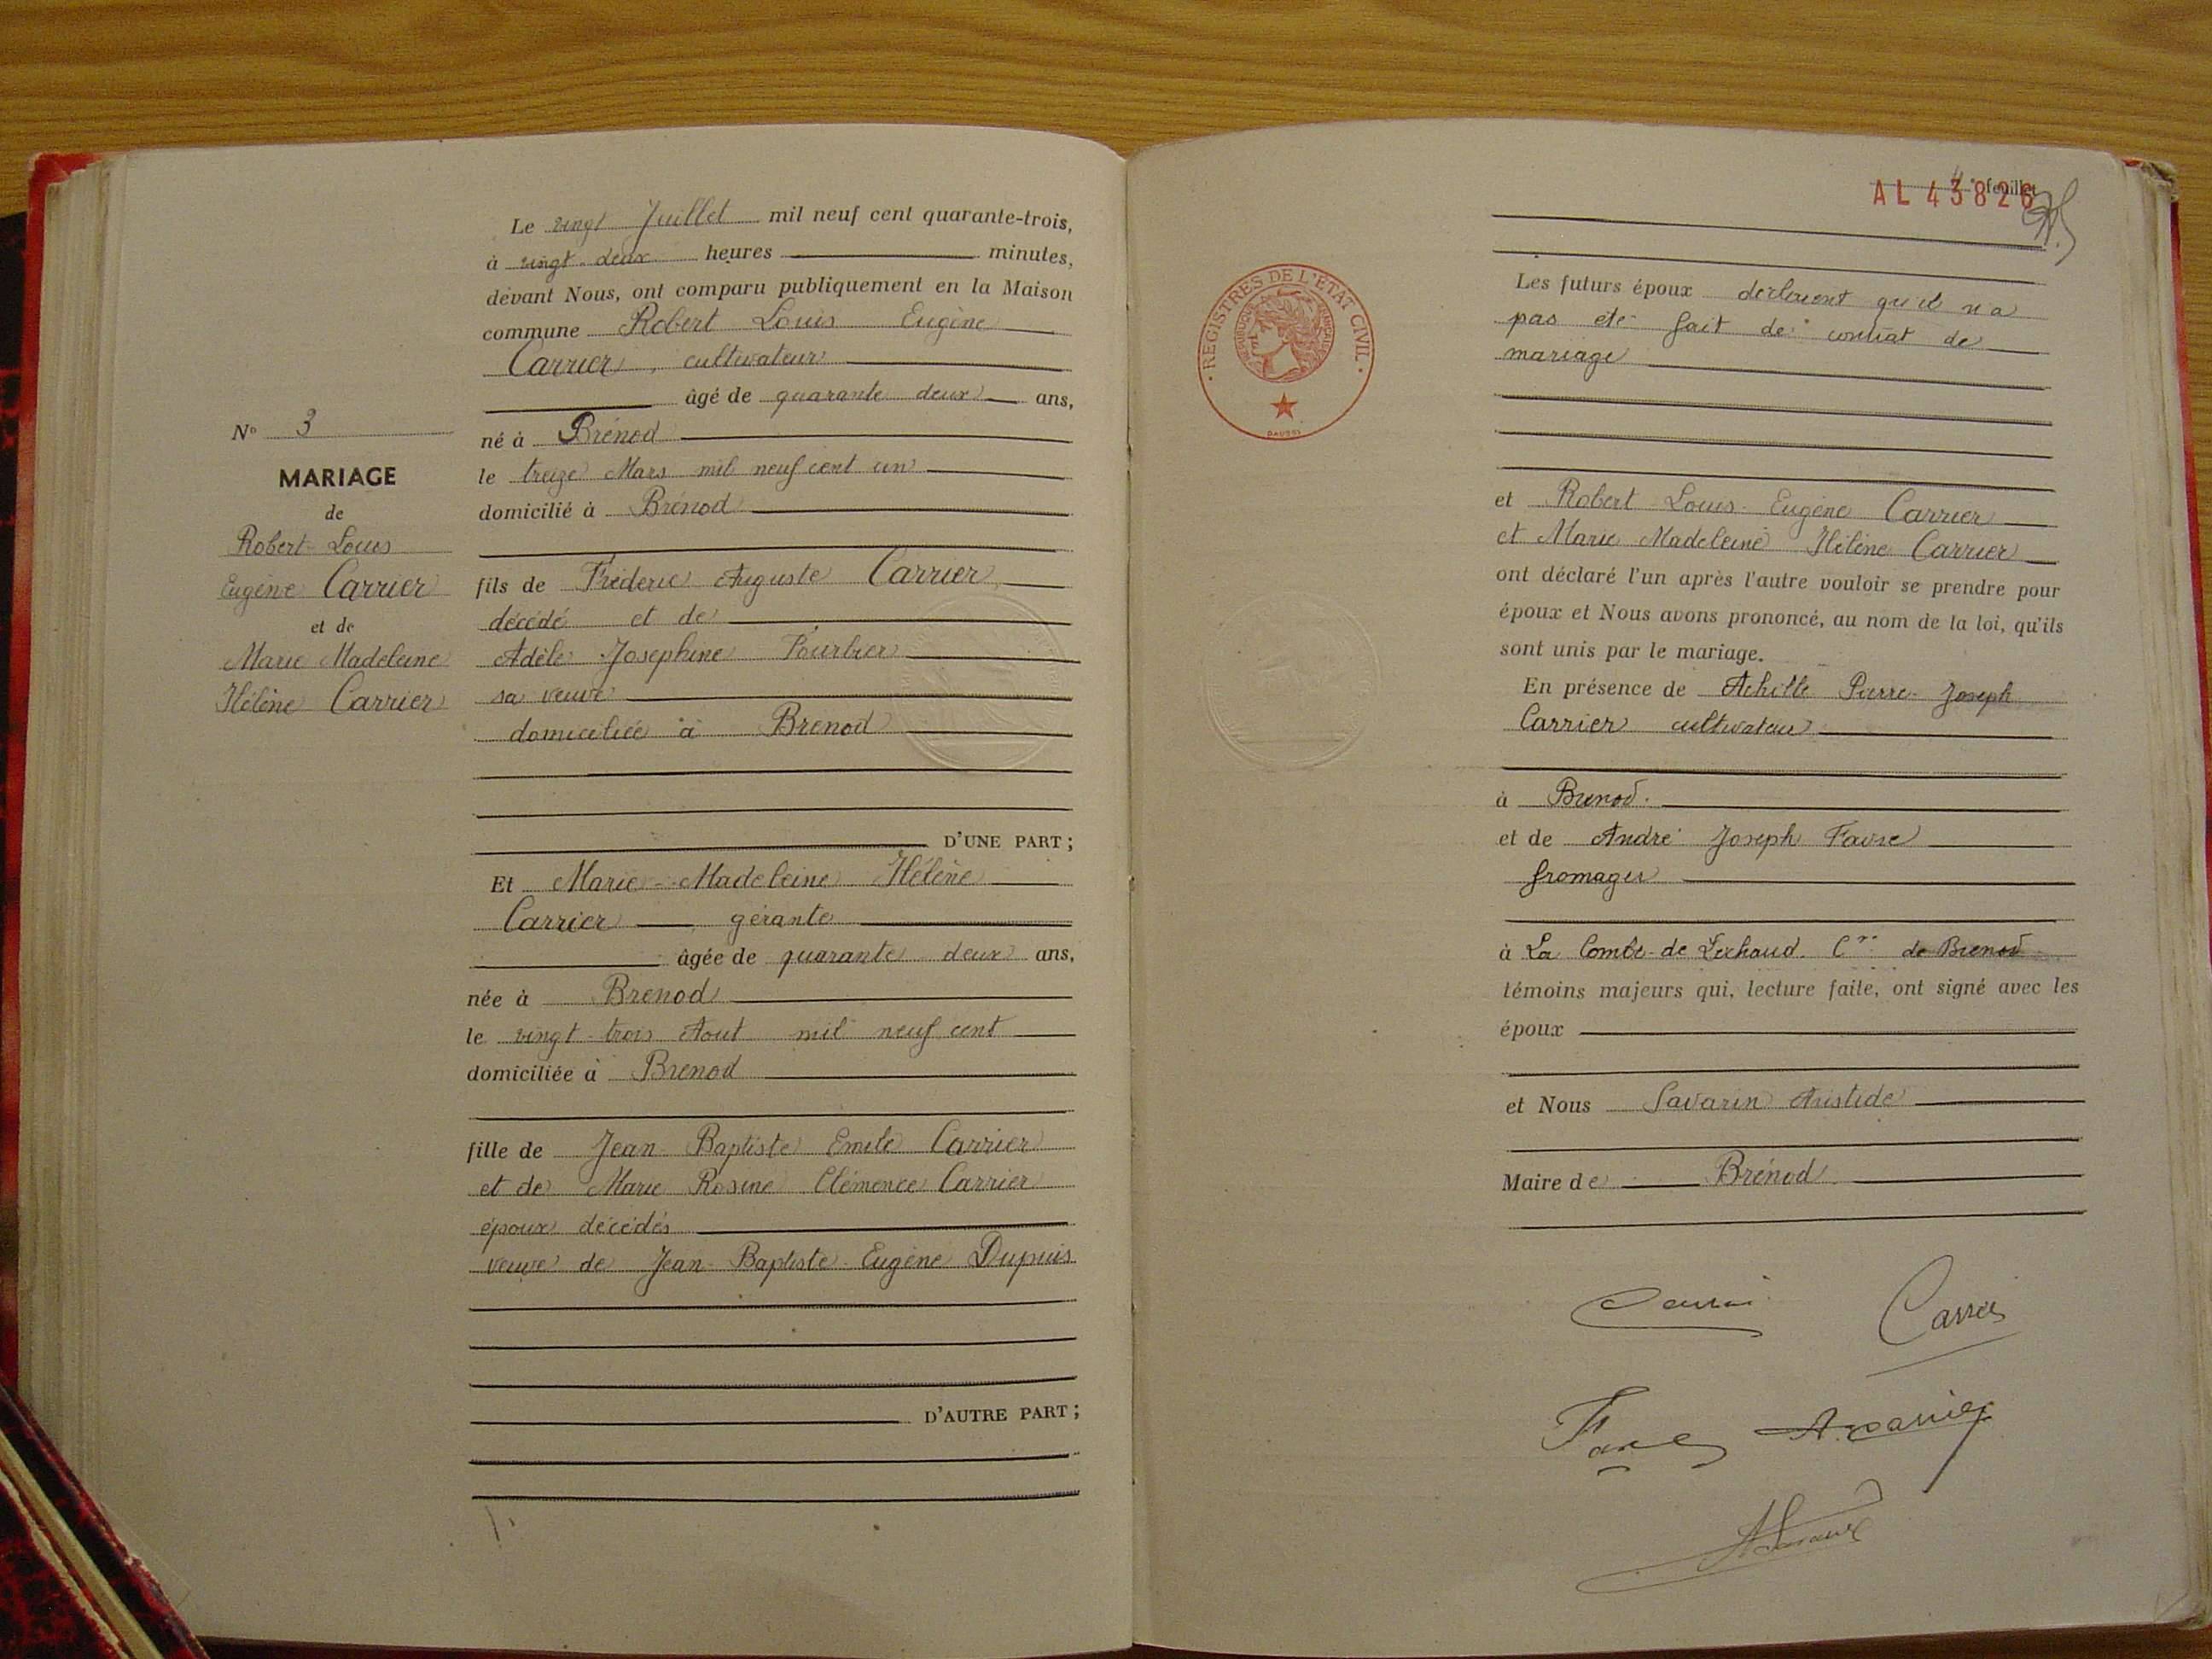 Le vingt Juillet mil neuf cent quarante-trois,
à vingt-deux heures minutes,
devant Nous, ont comparu publiquement en la Maison
commune Robert Louis Eugène
Carrier, cultivateur
âgé de quarante deux ans,
né à Brénod
le treize Mars mil neuf cent un
domicilié à Brénod
fils de Fréderic Auguste Carrier,
décédé et de
Adèle Joséphine
sa veuve
domiciliée à Brenod
D'UNE PART ;
Et Marie-Madeleine Hélène
Carrier, gérante
âgée de quarante deux ans,
née à Brenod
le vingt-trois Aout mil neuf cent
domiciliée à Brenod
fille de Jean-Baptiste Emile Carrier
et de Marie Rosine Clémence Carrier
époux décédés
veuve de Jean-Baptiste-Eugène Dupuis
D'AUTRE PART ;
N° 3
MARIAGE
de
Robert-Louis
Eugène Carrier
et de
Marie Madeleine
Hélène Carrier
AL 43826
feuillet
REGISTRES DE L'ÉTAT CIVIL
Les futurs époux declarent qu'il n'a
pas été fait de contrat de
mariage
et Robert-Louis-Eugène Carrier
et Marie Madeleine Hélène Carrier
ont déclaré l'un après l'autre vouloir se prendre pour
époux et Nous avons prononcé, au nom de la loi, qu'ils
sont unis par le mariage.
En présence de Achille Pierre-Joseph
Carrier cultivateur
à Brenod.
et de André Joseph Favre
fromager
à La Combe-de Lechaud. Cne de Brenod
témoins majeurs qui, lecture faite, ont signé avec les
époux
et Nous Savarin Aristide
Maire de Brénod
Carrier
A. Carrier